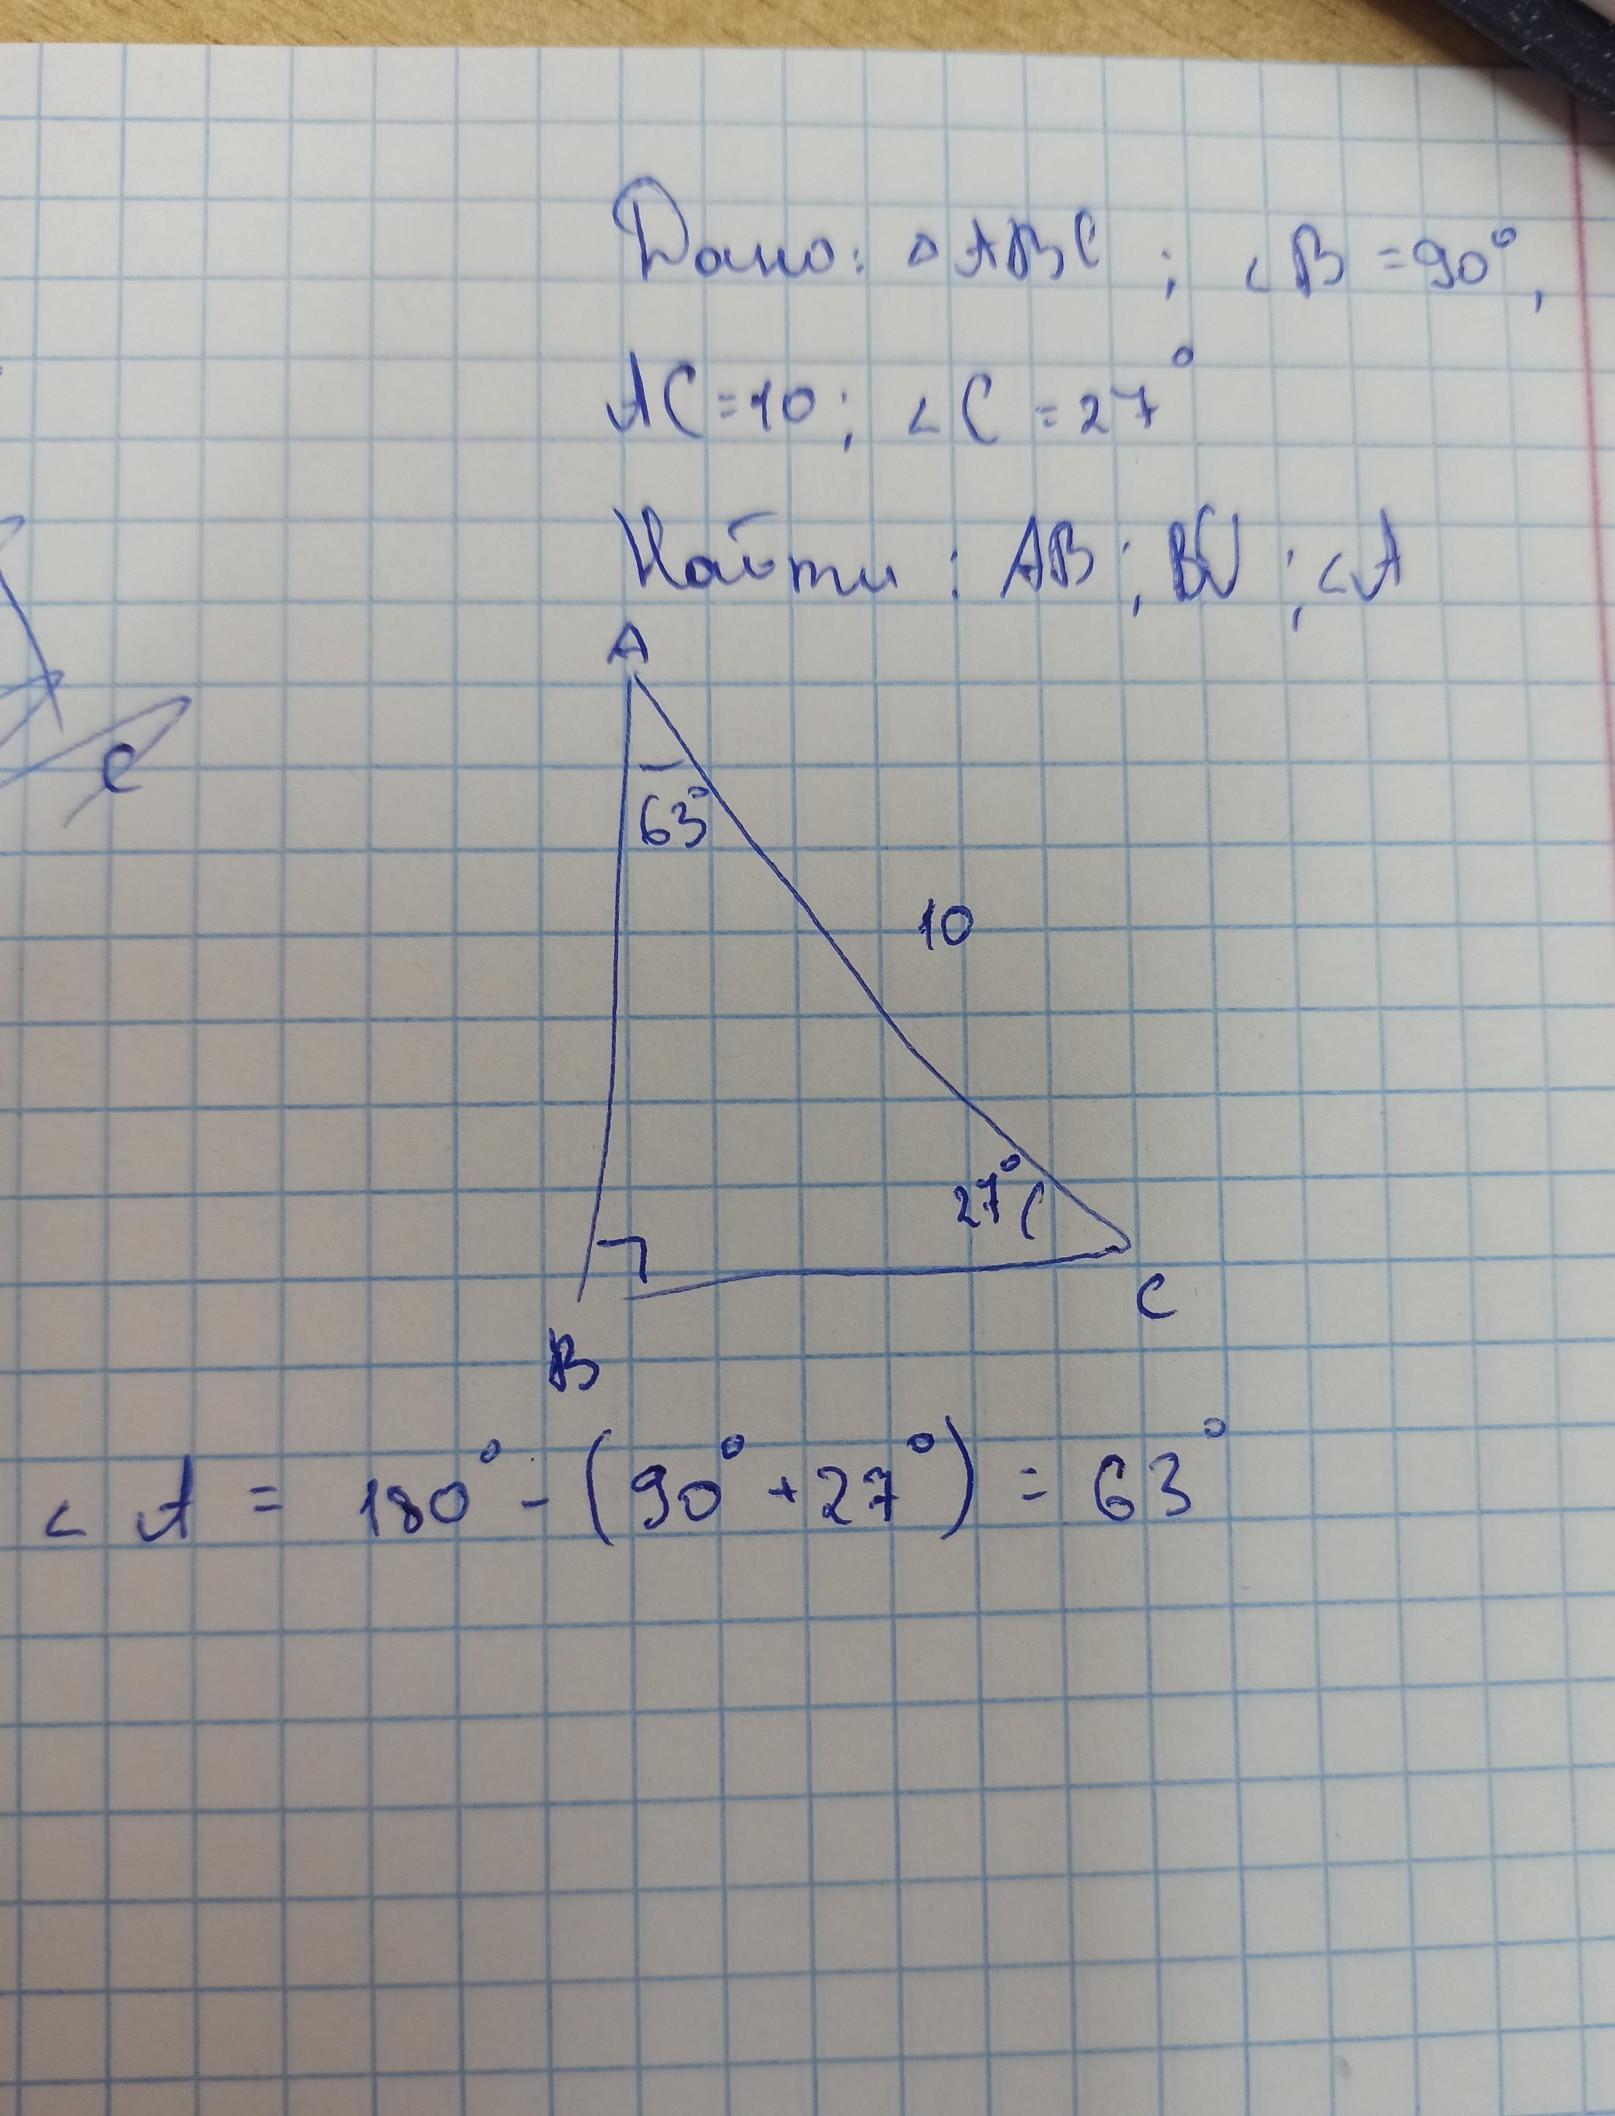 Дано: △ABC ; ∠B = 90°,
AC = 10 ; ∠C = 27°
Найти : AB ; BC ; ∠A
A
63°
C
10
27°
C
B
∠A = 180° - (90° + 27°) = 63°